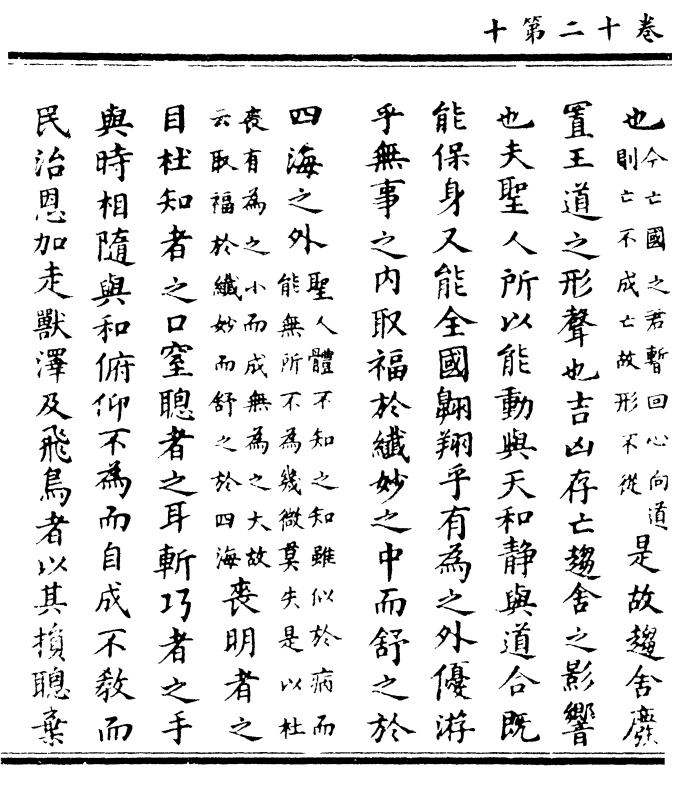 卷十二第十
也今亡國之君暫回心向道則亡不成亡故形不從是故趨舍廢
置王道之形聲也吉凶存亡趨舍之影響
也夫聖人所以能動與天和静與道合既
能保身又能全國翱翔乎有為之外優游
乎無事之内取福於纖妙之中而舒之於
四海之外聖人體不知之知雖似於病而能無所不為幾微莫失是以杜
喪有為之小而成無為之大故云取福於纖妙而舒之於四海喪明者之
目杜知者之口窒聰者之耳斬巧者之手
與時相隨與和俯仰不為而自成不教而
民治恩加走獸澤及飛鳥者以其損聰棄